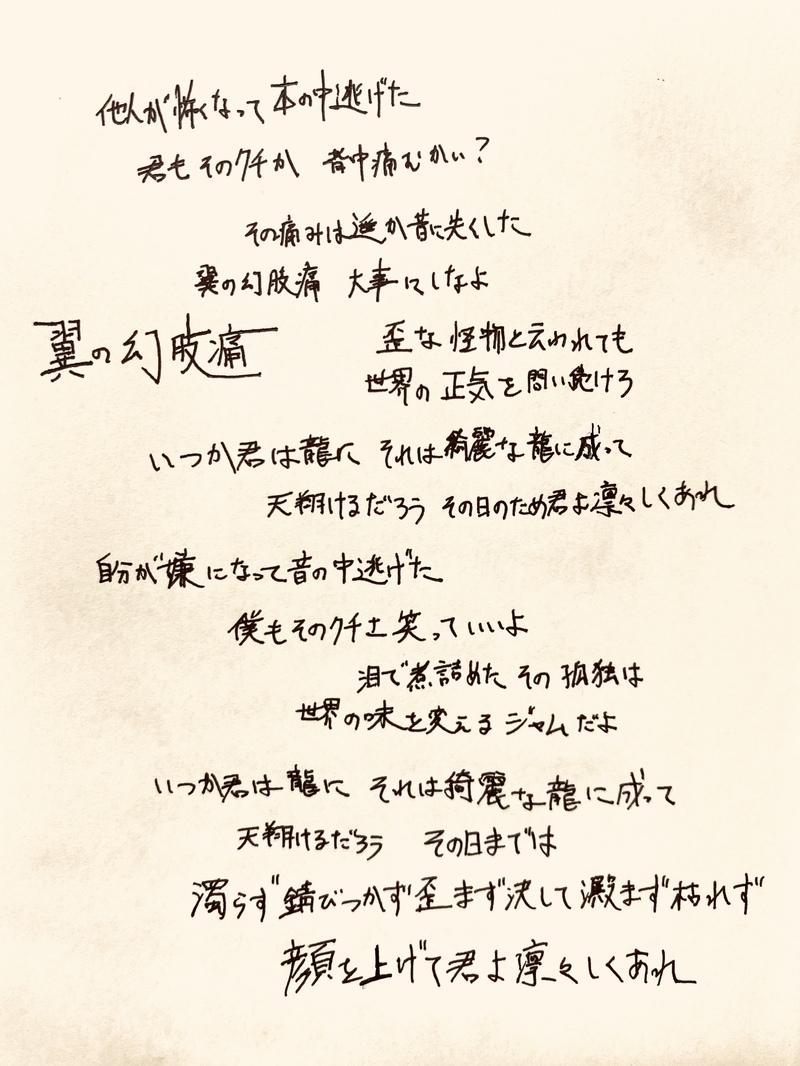 他人が怖くなって本の中逃げた
君もそのクチか 背中痛むかい?
その痛みは遥か昔に失くした
翼の幻肢痛 大事にしなよ
翼の幻肢痛
歪な怪物と云われても
世界の正気を問い続けろ
いつか君は龍に それは綺麗な龍に成って
天翔けるだろう その日のため君よ凛々しくあれ
自分が嫌になって音の中逃げた
僕もそのクチさ 笑っていいよ
泪で煮詰めた その孤独は
世界の味を変える ジャムだよ
いつか君は龍に それは綺麗な龍に成って
天翔けるだろう その日までは
濁らず錆びつかず歪まず決して澱まず枯れず
顔を上げて君よ凛々しくあれ